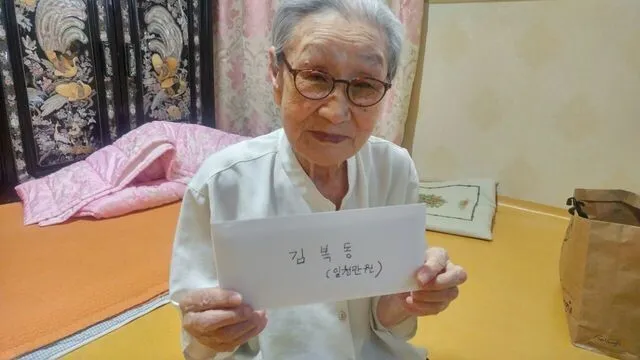 김 복 동
(일천만원)